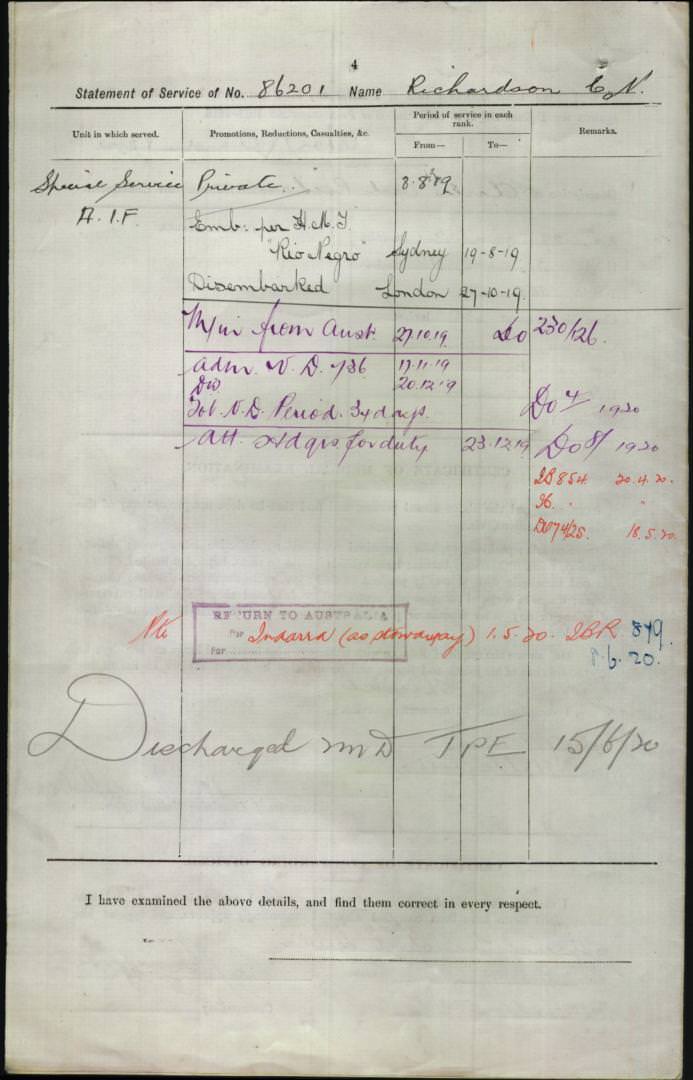 4
Statement of Service of No. 86201 Name Richardson C. N.
Unit in which served. Promotions, Reductions, Casualties, &c. Period of service in each rank. Remarks.
From— To—
Special Service Private. 8-8-19
A.I.F. Emb: per H.M.T.
"Rio Negro" Sydney 19-8-19
Disembarked London 27-10-19
M/in from Aust. 27.10.19 Do 230/126.
Adm. V.D. 17.11.19
Dis. 20.12.19
Tot. V.D. Period. 34 days. Do 4/ 1920
Att. Hdqrs for duty 23.12.19 Do 8/ 1920
2B 854 20.4.20.
"
Do 74/25. 18.5.20.
RETURN TO AUSTRALIA
Per Indarra (as stowaway) 1.5.20. 2BR 879
For 8.6.20.
Discharged 2MD TPE 15/6/20
I have examined the above details, and find them correct in every respect.